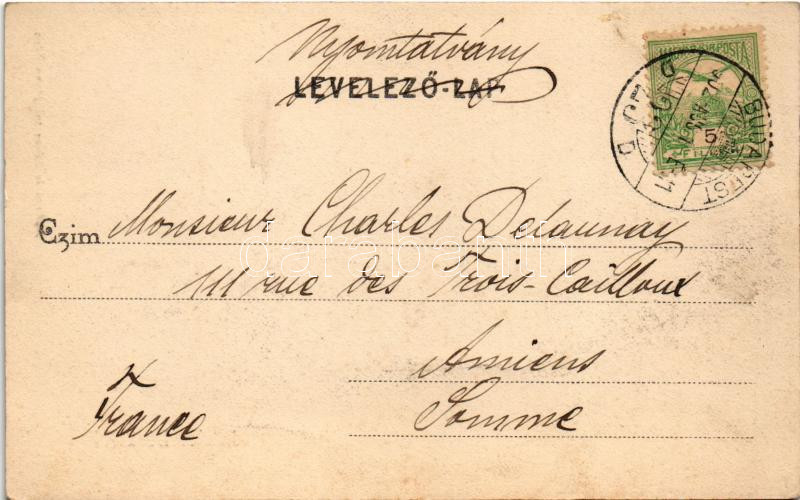 Nyomtatvány
LEVELEZŐ-LAP
MAGYAR KIR. POSTA
5
BUDAPEST
Czim Monsieur Charles Delaunay
111 rue des Trois-Cailloux
Amiens
France
Somme
darabanth